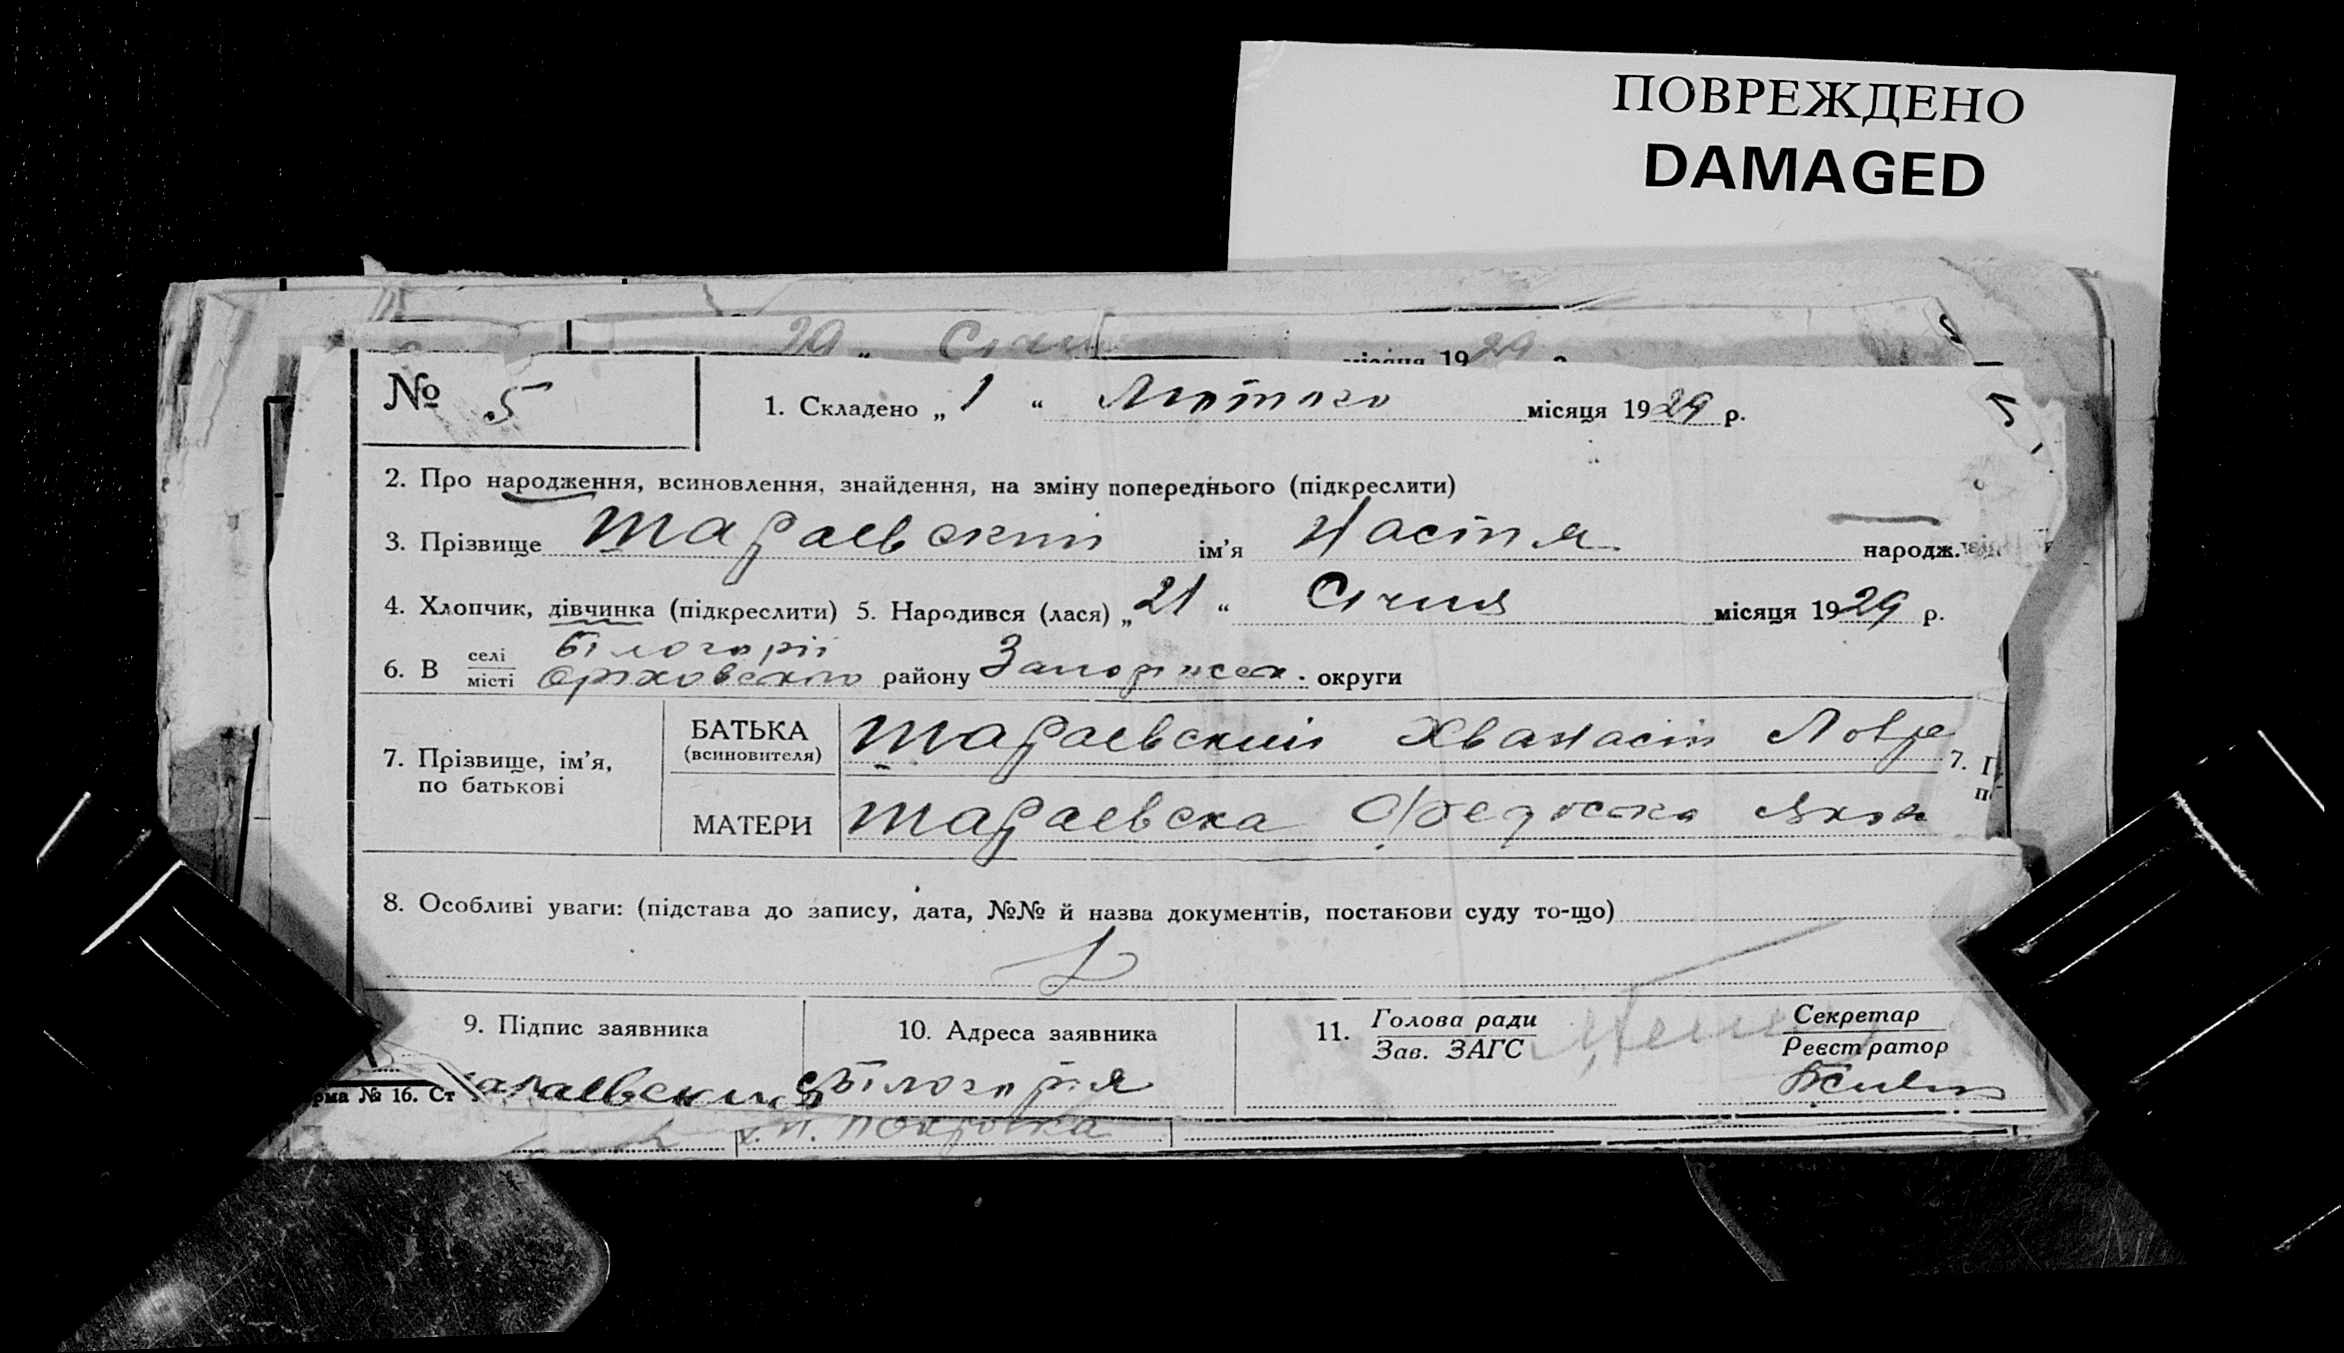 ПОВРЕЖДЕНО
DAMAGED
29 " Січн місяця 1929
№ 5
1. Складено „ 1 “ Лютого місяця 1929 р.
2. Про народження, всиновлення, знайдення, на зміну попереднього (підкреслити)
3. Прізвище Шараевский ім’я Настя народж.
4. Хлопчик, дівчинка (підкреслити) 5. Народився (лася) „ 21 “ Січня місяця 1929 р.
6. В селі місті Білогорії Оріховского району Запоріжск. округи
7. Прізвище, ім’я, по батькові
БАТЬКА (всиновителя) Шараевский Хванасій Лавре
7.
МАТЕРИ Шараевска Федоска Яков
8. Особливі уваги: (підстава до запису, дата, №№ й назва документів, постанови суду то-що)
9. Підпис заявника
10. Адреса заявника
11. Голова ради Зав. ЗАГС
Секретар Реєстратор
араевский
Білогорія
рма № 16. Ст
х. Н. Покровка